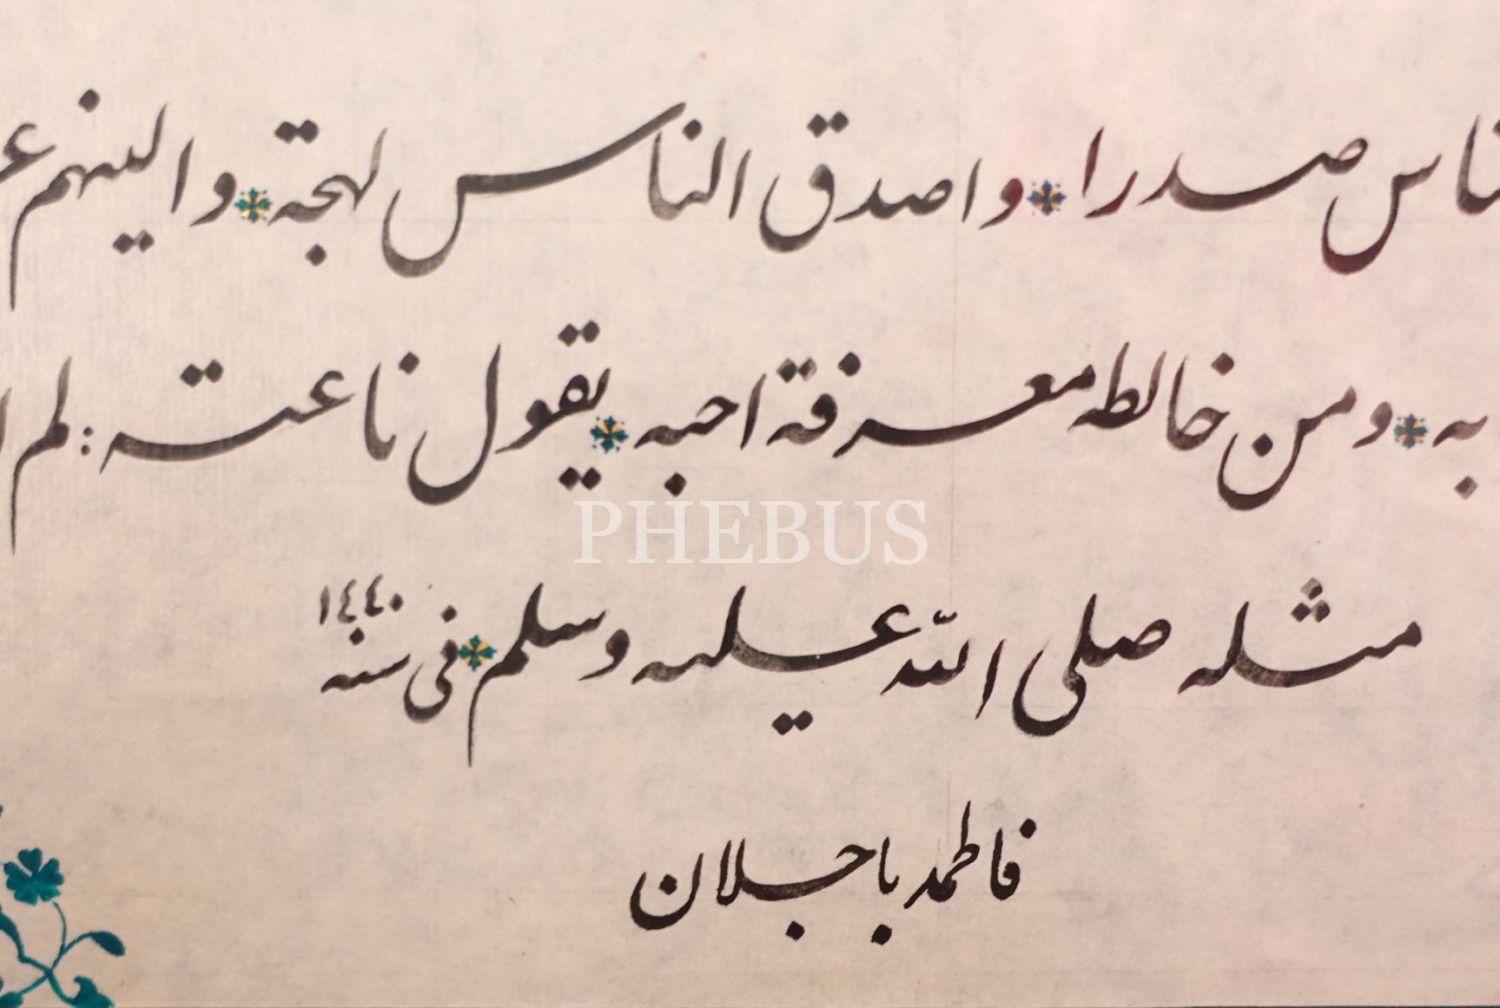 ناس صدرا واصدق الناس لهجة والينهم
به ومن خالطه معرفة احبه يقول ناعته : لم
PHEBUS
مثله صلى الله عليه وسلم في سنه ١٤٤٠
فاطمه باجلان